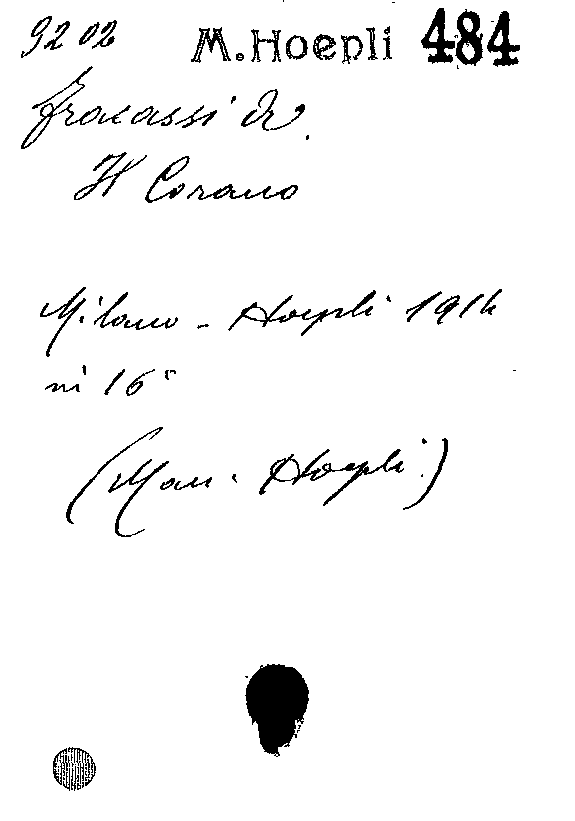 9202 M. Hoepli 484
Fracassi A.
Il Corano
Milano - Hoepli 1914
in 16°
(Man. Hoepli)